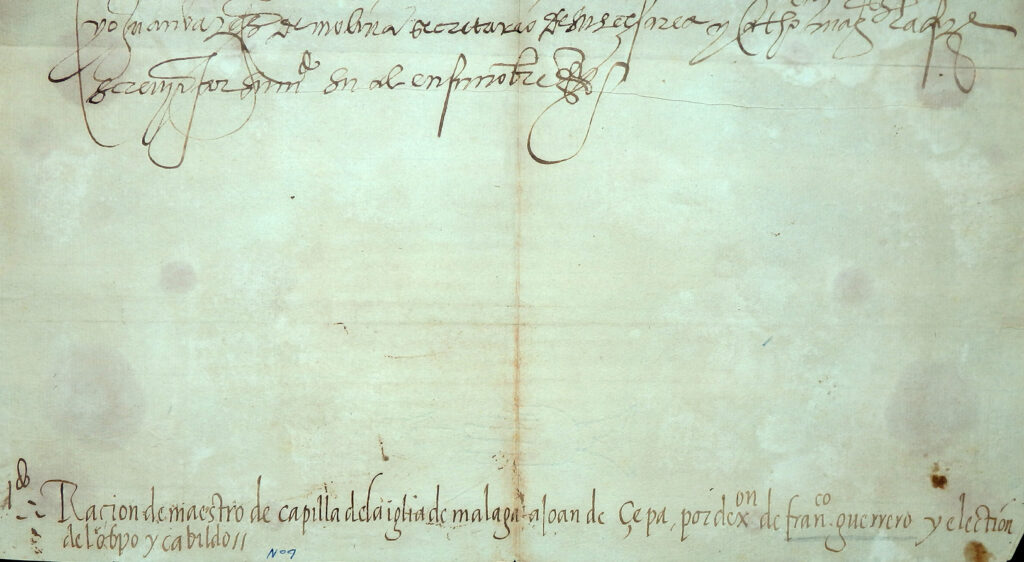 yo Juan vazqz de molina secretario de sus cesarea y catho. magtes la fize
screvir por su mdo su al. en su nombre
Raçion de maestro de capilla de la iglia de malaga a Joan de Çepa, por dexon de franco. guerrero y election
del obpo y cabildo //
Nº 9